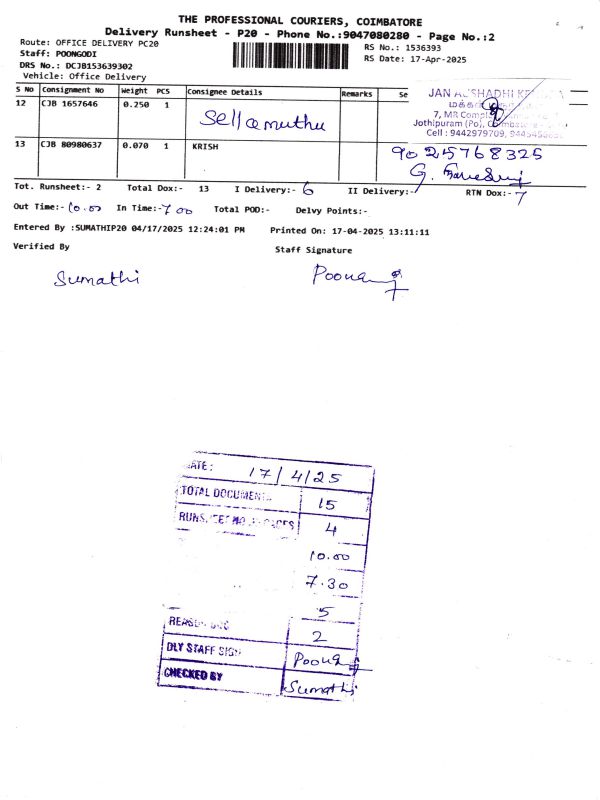 THE PROFESSIONAL COURIERS, COIMBATORE
Delivery Runsheet - P20 - Phone No.:9047080280 - Page No.:2
Route: OFFICE DELIVERY PC20
RS No.: 1536393
Staff: POONGODI
RS Date: 17-Apr-2025
DRS No.: DCJB153639302
Vehicle: Office Delivery
S No Consignment No Weight PCS Consignee Details Remarks Se
12 CJB 1657646 0.250 1 Sellamuthu
JAN AUSHADHI
7, MR Compl
Jothipuram (Po), Coimbatore
Cell : 9442979709,
13 CJB 80980637 0.070 1 KRISH
9025768325
Tot. Runsheet:- 2 Total Dox:- 13 I Delivery:- 6 II Delivery:- RTN Dox:- 7
Out Time:- 10.00 In Time:- 7 00 Total POD:- Delvy Points:-
Entered By :SUMATHIP20 04/17/2025 12:24:01 PM Printed On: 17-04-2025 13:11:11
Verified By Staff Signature
Sumathi
DATE: 17/4/25
TOTAL DOCUMENT 15
4
10.00
7.30
5
2
DLY STAFF SIGN
CHECKED BY Sumathi